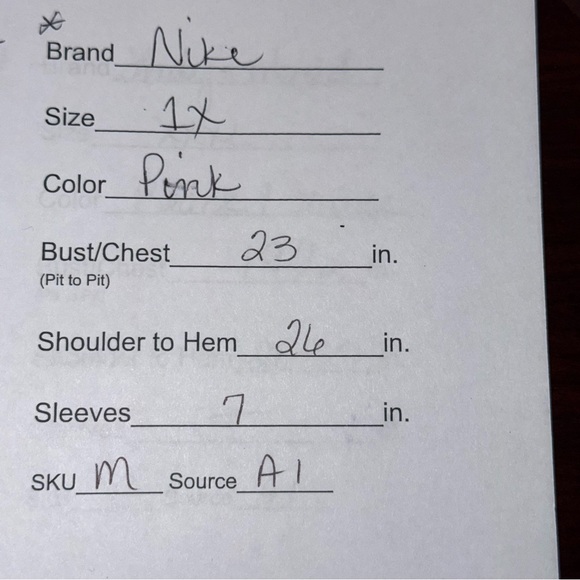 Brand Nike
Size 1X
Color Pink
Bust/Chest 23 in.
(Pit to Pit)
Shoulder to Hem 26 in.
Sleeves 7 in.
SKU M Source A1